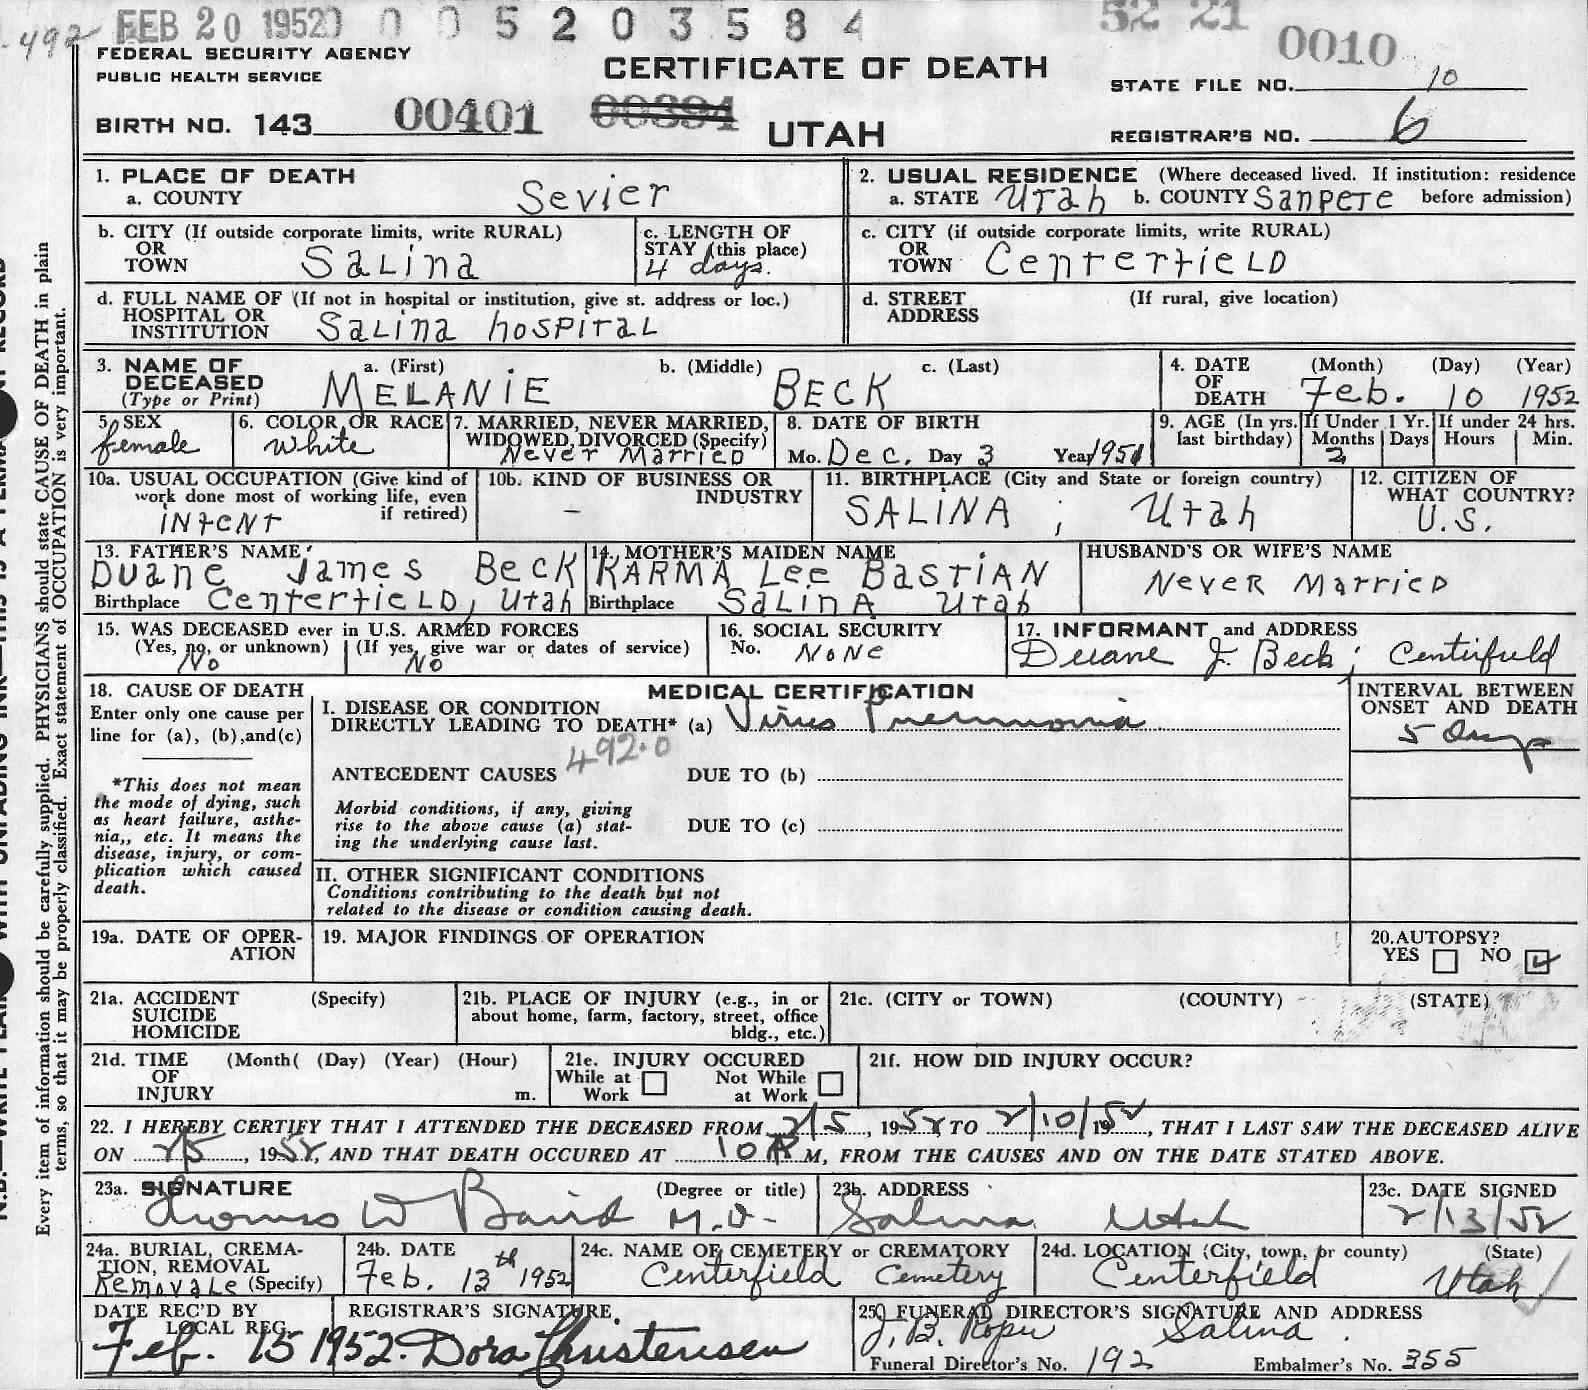 492 FEB 20 1952 0 0 5 2 0 3 5 8 4 52 21 0010
FEDERAL SECURITY AGENCY
PUBLIC HEALTH SERVICE
CERTIFICATE OF DEATH
STATE FILE NO. 10
BIRTH NO. 143 00401 00394
UTAH
REGISTRAR'S NO. 6
1. PLACE OF DEATH
a. COUNTY Sevier
2. USUAL RESIDENCE (Where deceased lived. If institution: residence before admission)
a. STATE Utah b. COUNTY Sanpete
b. CITY (If outside corporate limits, write RURAL)
OR
TOWN Salina
c. LENGTH OF
STAY (this place)
4 days.
c. CITY (if outside corporate limits, write RURAL)
OR
TOWN Centerfield
d. FULL NAME OF (If not in hospital or institution, give st. address or loc.)
HOSPITAL OR
INSTITUTION Salina hospital
d. STREET (If rural, give location)
ADDRESS
3. NAME OF
DECEASED
(Type or Print)
a. (First) b. (Middle) c. (Last)
MELANIE BECK
4. DATE (Month) (Day) (Year)
OF
DEATH Feb. 10 1952
5. SEX
female
6. COLOR OR RACE
White
7. MARRIED, NEVER MARRIED,
WIDOWED, DIVORCED (Specify)
Never Married
8. DATE OF BIRTH
Mo. Dec. Day 3 Year 1951
9. AGE (In yrs. last birthday)
If Under 1 Yr. Months Days
2
If under 24 hrs. Hours Min.
10a. USUAL OCCUPATION (Give kind of
work done most of working life, even
if retired)
infent
10b. KIND OF BUSINESS OR
INDUSTRY
–
11. BIRTHPLACE (City and State or foreign country)
SALINA ; Utah
12. CITIZEN OF
WHAT COUNTRY?
U.S.
13. FATHER'S NAME
Duane James Beck
Birthplace Centerfield, Utah
14. MOTHER'S MAIDEN NAME
KARMA Lee BASTIAN
Birthplace SALINA Utah
HUSBAND'S OR WIFE'S NAME
Never Married
15. WAS DECEASED ever in U.S. ARMED FORCES
(Yes, no, or unknown) (If yes, give war or dates of service)
No No
16. SOCIAL SECURITY
No. None
17. INFORMANT and ADDRESS
Duane J. Beck; Centerfield
18. CAUSE OF DEATH
Enter only one cause per
line for (a), (b), and (c)
*This does not mean
the mode of dying, such
as heart failure, asthe-
nia,, etc. It means the
disease, injury, or com-
plication which caused
death.
MEDICAL CERTIFICATION
I. DISEASE OR CONDITION
DIRECTLY LEADING TO DEATH* (a) Virus Pneumonia
492.0
ANTECEDENT CAUSES DUE TO (b)
Morbid conditions, if any, giving
rise to the above cause (a) stat-
ing the underlying cause last.
DUE TO (c)
INTERVAL BETWEEN
ONSET AND DEATH
5 Days
II. OTHER SIGNIFICANT CONDITIONS
Conditions contributing to the death but not
related to the disease or condition causing death.
19a. DATE OF OPER-
ATION
19. MAJOR FINDINGS OF OPERATION
20. AUTOPSY?
YES NO
21a. ACCIDENT (Specify)
SUICIDE
HOMICIDE
21b. PLACE OF INJURY (e.g., in or
about home, farm, factory, street, office
bldg., etc.)
21c. (CITY or TOWN) (COUNTY) (STATE)
21d. TIME (Month( (Day) (Year) (Hour)
OF
INJURY m.
21e. INJURY OCCURED
While at Work Not While at Work
21f. HOW DID INJURY OCCUR?
22. I HEREBY CERTIFY THAT I ATTENDED THE DECEASED FROM 2/5, 1952, TO 2/10/1952, THAT I LAST SAW THE DECEASED ALIVE
ON 2/5, 1952, AND THAT DEATH OCCURED AT 10 M, FROM THE CAUSES AND ON THE DATE STATED ABOVE.
23a. SIGNATURE (Degree or title)
Thomas W Baird M.D.
23b. ADDRESS
Salina Utah
23c. DATE SIGNED
2/13/52
24a. BURIAL, CREMA-
TION, REMOVAL
Removale (Specify)
24b. DATE
Feb. 13th 1952
24c. NAME OF CEMETERY or CREMATORY
Centerfield Cemetery
24d. LOCATION (City, town, or county) (State)
Centerfield Utah
DATE REC'D BY
LOCAL REG.
Feb. 15 1952.
REGISTRAR'S SIGNATURE
Dora Christensen
25. FUNERAL DIRECTOR'S SIGNATURE AND ADDRESS
J. B. Roper Salina.
Funeral Director's No. 192 Embalmer's No. 355
Every item of information should be carefully supplied. PHYSICIANS should state CAUSE OF DEATH in plain
terms, so that it may be properly classified. Exact statement of OCCUPATION is very important.